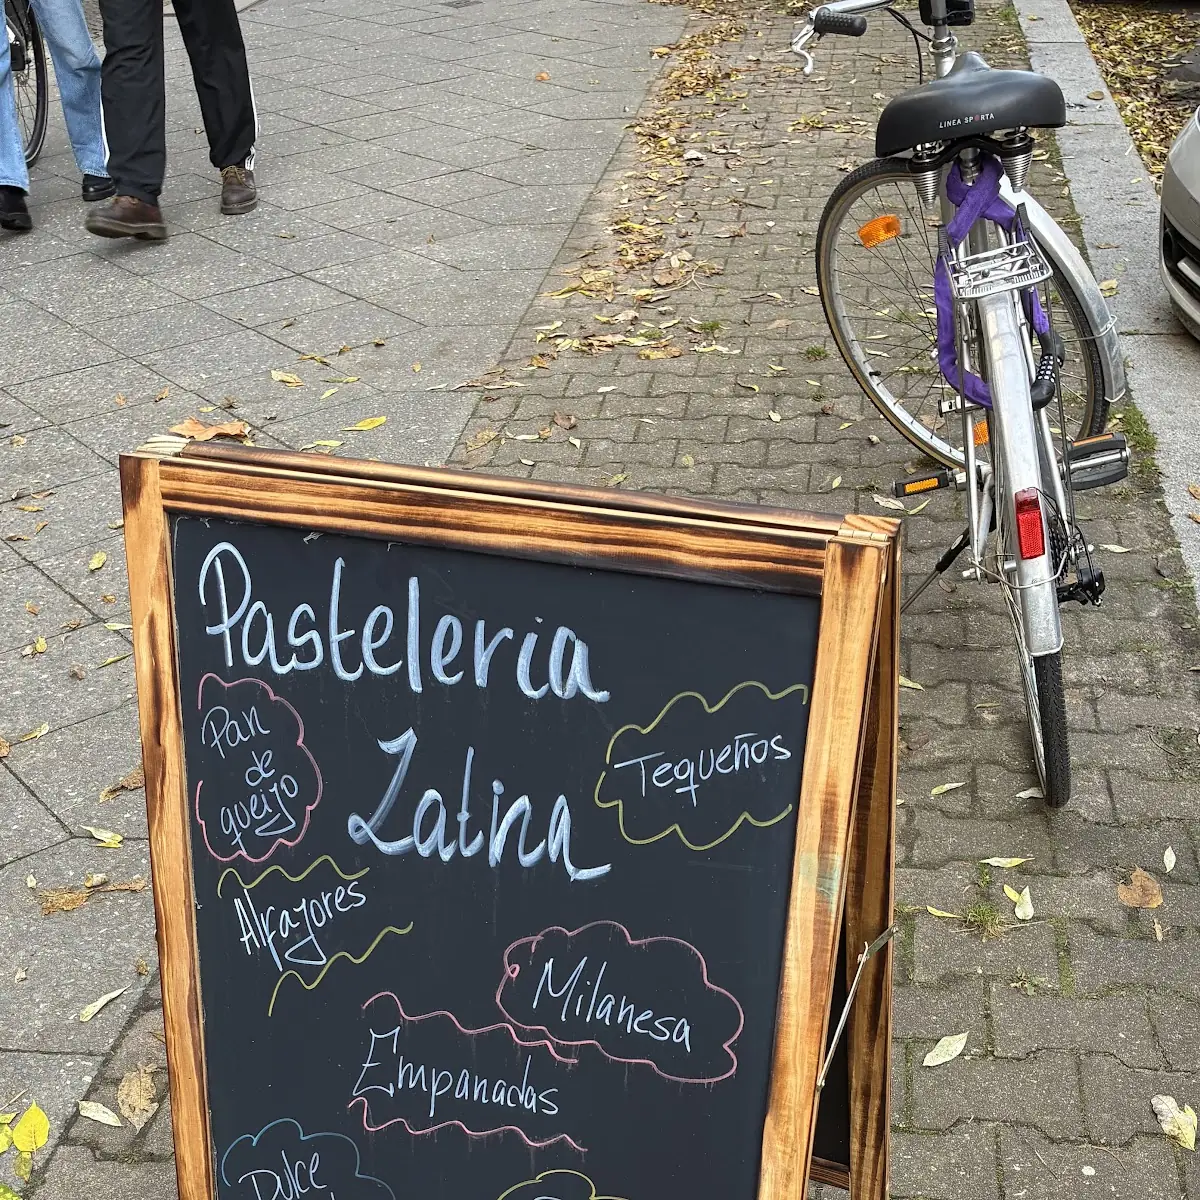 LINEA SPORTA
Pasteleria
Latina
Pan
de
queijo
Tequeños
Alfajores
Milanesa
Empanadas
Dulce